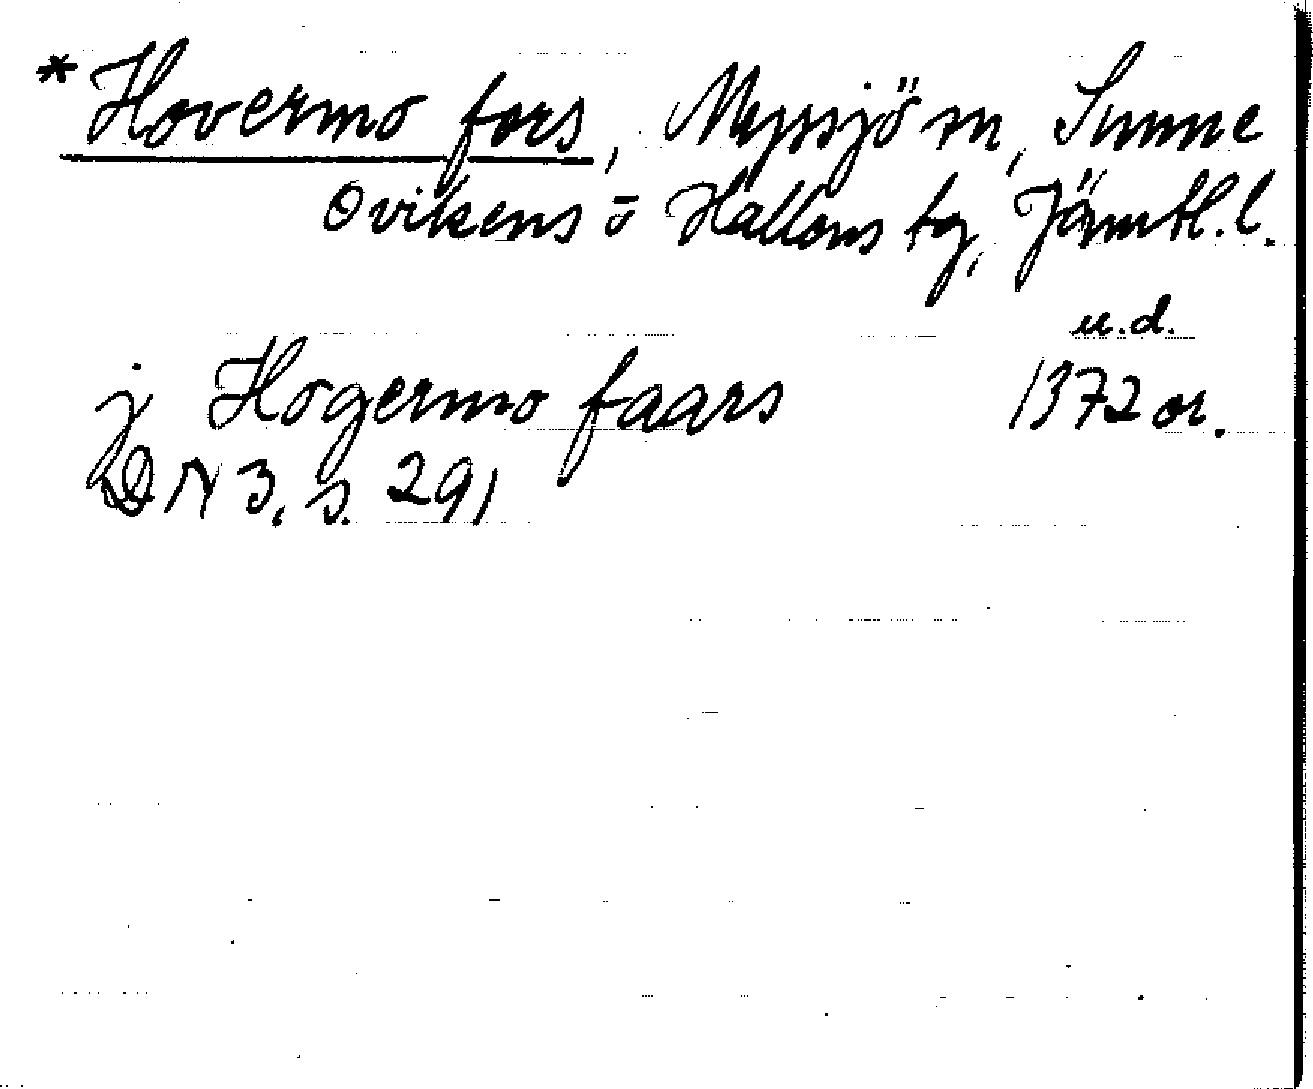 *Hovermo fors, Myssjö sn, Sunne
Ovikens o Hallens tg, Jämtl. l.
u.d.
j Hogermo faars 1372 or.
DN 3, s. 291